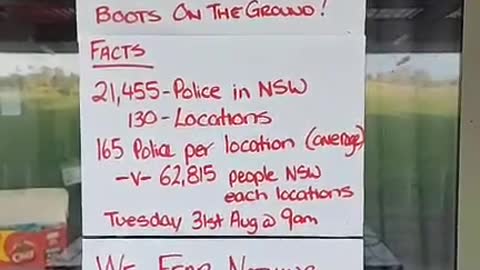 BOOTS ON THE GROUND!
FACTS
21,455 - Police in NSW
130 - Locations
165 Police per location (average)
-V- 62,815 people NSW
each locations
Tuesday 31st Aug @ 9am
WE FEAR NOTHING